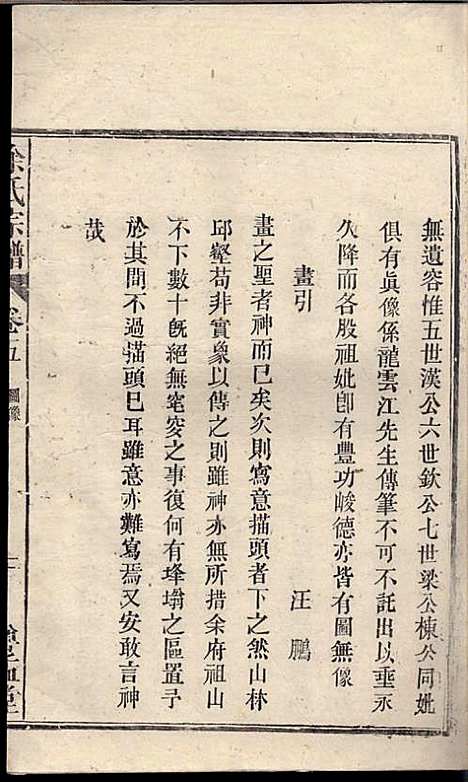 無遺容惟五世漢公六世欽公七世梁公棟公同妣
俱有眞像係龍雲江先生傳筆不可不託出以垂永
久降而各股祖妣卽有豐功峻德亦皆有圖無像
畫引　汪鵬
畫之聖者神而已矣次則寫意描頭者下之然山林
邱壑苟非實象以傳之則雖神亦無所措余府祖山
不下數十旣絕無窀穸之事復何有垾塴之區置予
於其間不過描頭已耳雖意亦難寫焉又安敢言神
哉
徐氏宗譜 卷五 圖像 一